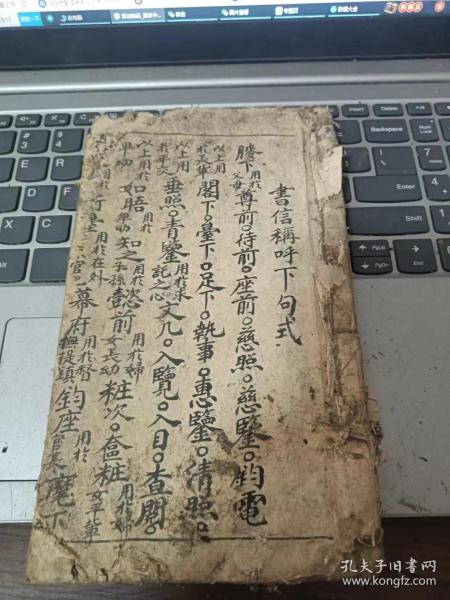 書信稱呼下句式
膝下用於父母尊前。侍前。座前。慈照。慈鑒。鈞電
以上用於長輩閣下。臺下。足下。執事。惠鑒。清照。
以上用於平交垂照。青鑒用於求託之心文几。入覽。入目。查閱。
以上用於卑幼如晤用於卑幼知之用於子孫懿前用於婦女長幼粧次。奩粧用於婦女平輩
用於在外官幕府用於督撫提鎮鈞座用於官長麾下
孔夫子旧书网
www.kongfz.com
Insert
Delete
Backspace
NumLock
Home
Enter
Shift
PgUp
PgDn